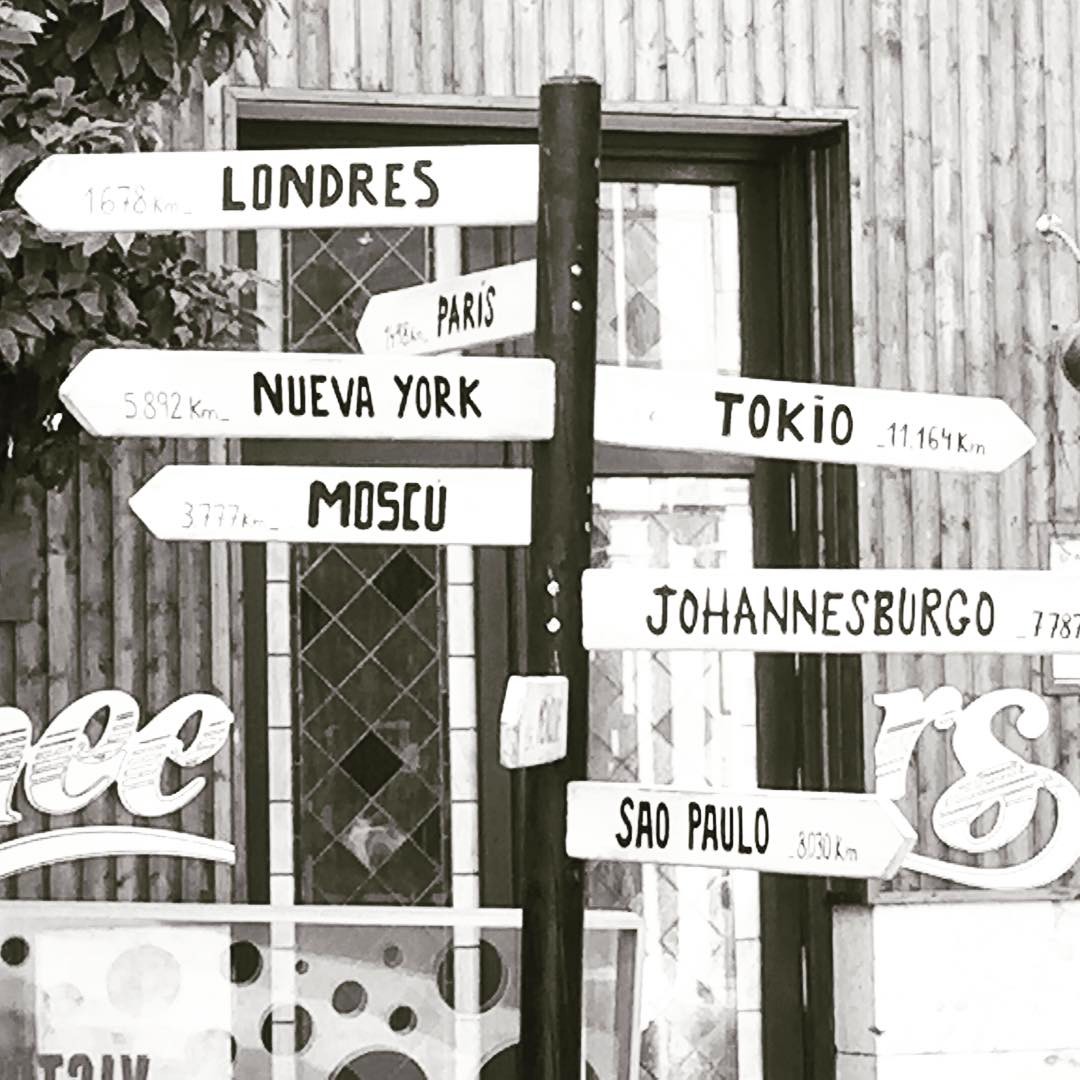 1678 Km_ LONDRES
PARÍS
5892 Km_ NUEVA YORK
TOKIO _11.164 Km
3777 Km_ MOSCÚ
JOHANNESBURGO _7787
SAO PAULO _8030 Km
nee
rs